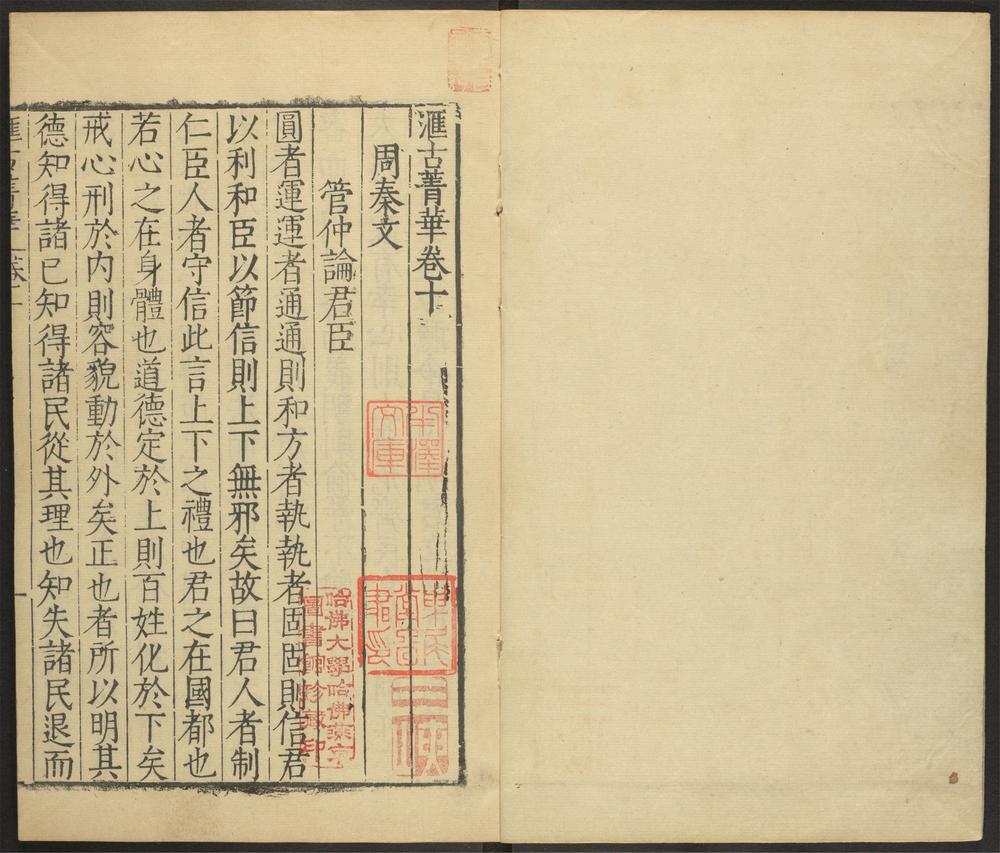 滙古菁華卷十
周秦文
管仲論君臣
圓者運運者通通則和方者執執者固固則信君
以利和臣以節信則上下無邪矣故曰君人者制
仁臣人者守信此言上下之禮也君之在國都也
若心之在身體也道德定於上則百姓化於下矣
戒心刑於內則容貌動於外矣正也者所以明其
德知得諸已知得諸民從其理也知失諸民退而
哈佛大學哈佛燕京
圖書館珍藏印